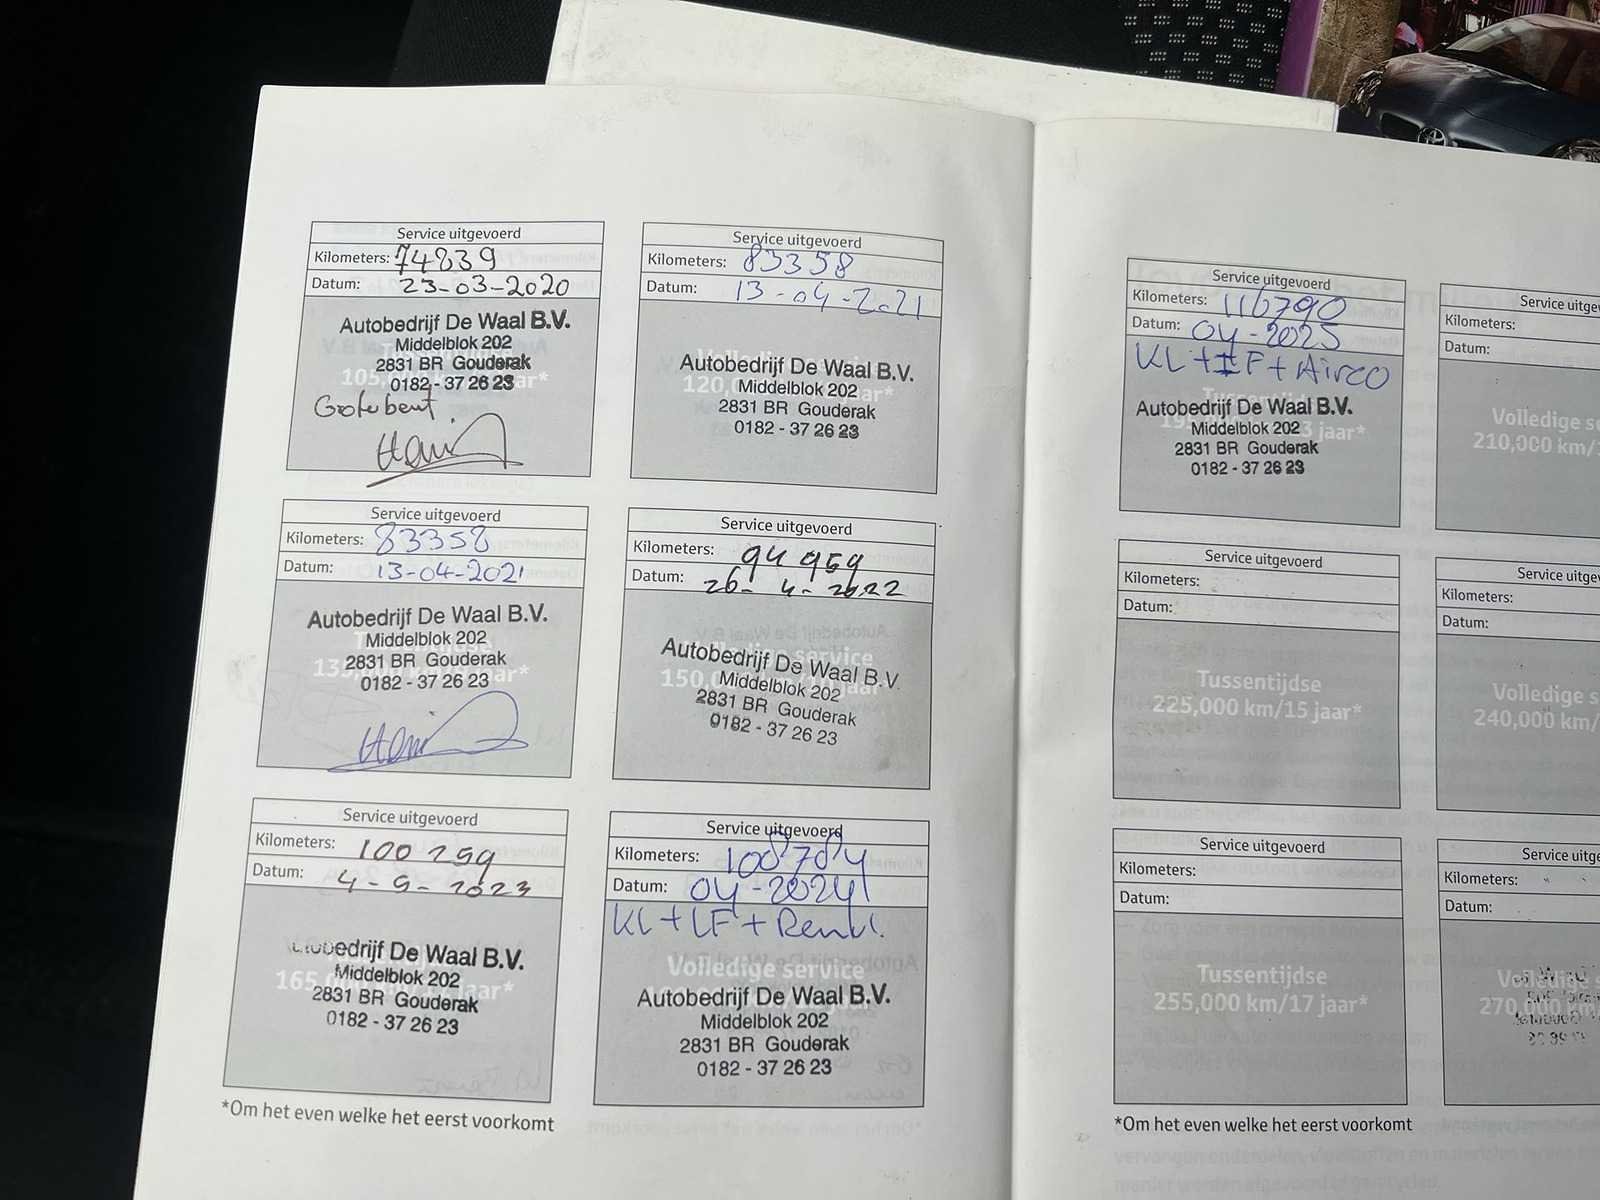 Service uitgevoerd
Kilometers: 74839
Datum: 23-03-2020
Autobedrijf De Waal B.V.
Middelblok 202
2831 BR Gouderak
0182 - 37 26 23
105,
jaar*
Grote beurt
Service uitgevoerd
Kilometers: 83358
Datum: 13-04-2021
Autobedrijf De Waal B.V.
Middelblok 202
2831 BR Gouderak
0182 - 37 26 23
Service uitgevoerd
Kilometers: 83358
Datum: 13-04-2021
Autobedrijf De Waal B.V.
Middelblok 202
2831 BR Gouderak
0182 - 37 26 23
Service uitgevoerd
Kilometers: 94 959
Datum: 26-4-2022
Autobedrijf De Waal B.V.
Middelblok 202
2831 BR Gouderak
0182 - 37 26 23
Service uitgevoerd
Kilometers: 100 259
Datum: 4-9-2023
Autobedrijf De Waal B.V.
Middelblok 202
2831 BR Gouderak
0182 - 37 26 23
Service uitgevoerd
Kilometers: 108784
Datum: 04-2024
KL + LF + Remvl.
Volledige service
Autobedrijf De Waal B.V.
Middelblok 202
2831 BR Gouderak
0182 - 37 26 23
*Om het even welke het eerst voorkomt
Service uitgevoerd
Kilometers: 116790
Datum: 04-2025
KL + IF + Airco
Tussentijdse
Autobedrijf De Waal B.V.
Middelblok 202
2831 BR Gouderak
0182 - 37 26 23
Service uitge
Kilometers:
Datum:
Volledige s
210,000 km/
Service uitgevoerd
Kilometers:
Datum:
Tussentijdse
225,000 km/15 jaar*
Service uitge
Kilometers:
Datum:
Volledige s
240,000 km/
Service uitgevoerd
Kilometers:
Datum:
Tussentijdse
255,000 km/17 jaar*
Service uitg
Kilometers:
Datum:
Volledige s
270,000 km/
*Om het even welke het eerst voorkomt